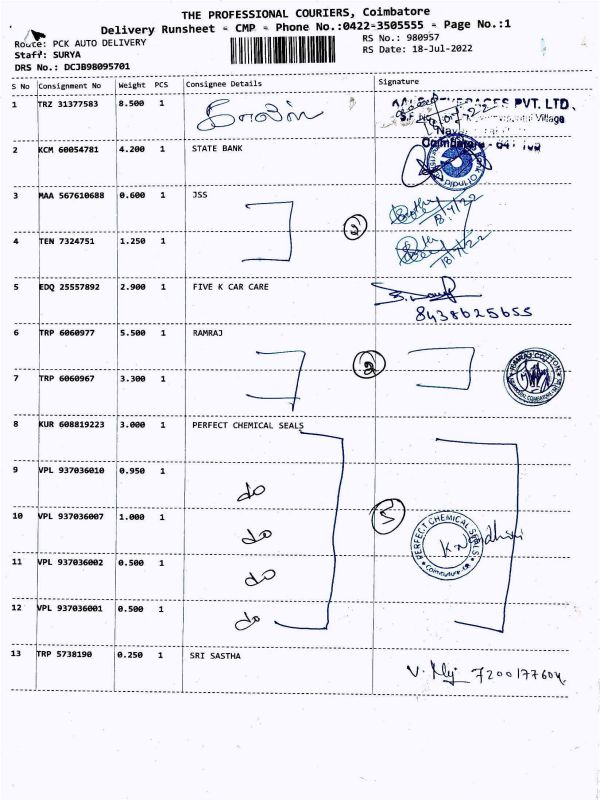 THE PROFESSIONAL COURIERS, Coimbatore
Delivery Runsheet - CMP - Phone No.:0422-3505555 - Page No.:1
Route: PCK AUTO DELIVERY
RS No.: 980957
Staff: SURYA
RS Date: 18-Jul-2022
DRS No.: DCJB98095701
S No Consignment No Weight PCS Consignee Details Signature
1 TRZ 31377583 8.500 1
PVT. LTD.
S.F. No. Village
Coimbatore - 641
2 KCM 60054781 4.200 1 STATE BANK
3 MAA 567610688 0.600 1 JSS
18/7/22
2
4 TEN 7324751 1.250 1
18/7/22
5 EDQ 25557892 2.900 1 FIVE K CAR CARE
8438625655
6 TRP 6060977 5.500 1 RAMRAJ
2
RAMRAJ COTTON
7 TRP 6060967 3.300 1
8 KUR 608819223 3.000 1 PERFECT CHEMICAL SEALS
9 VPL 937036010 0.950 1 do
10 VPL 937036007 1.000 1 do
PERFECT CHEMICAL SEALS
Coimbatore
11 VPL 937036002 0.500 1 do
12 VPL 937036001 0.500 1 do
13 TRP 5738190 0.250 1 SRI SASTHA